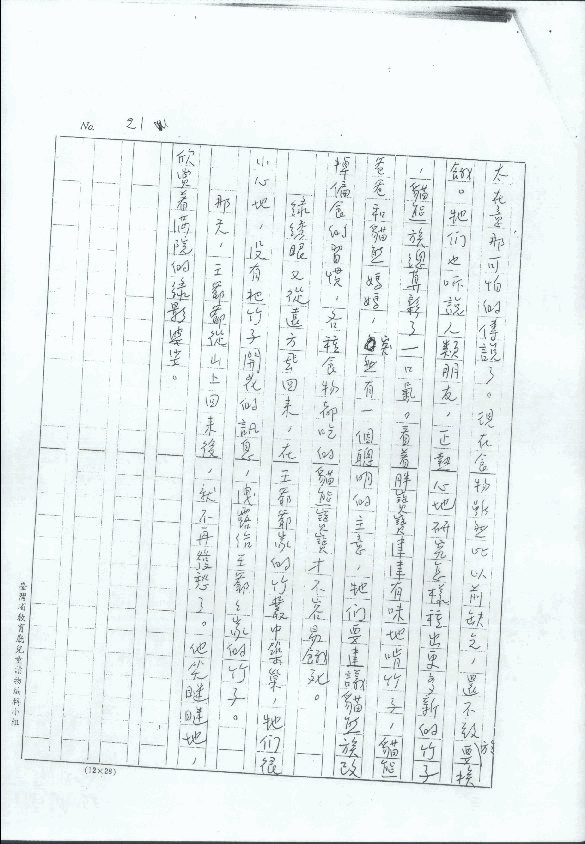 No. 21
太在意那可怕的傳說了。現在食物雖然比以前缺乏,還不致要挨
餓。牠們也聽說人類朋友,正熱心地研究怎樣種出更多新的竹子
,貓熊族總算鬆了一口氣。看著胖寶寶津津有味地啃竹子,貓熊
爸爸和貓熊媽媽,突然有一個聰明的主意,牠們要建議貓熊族改
掉偏食的習慣,各種食物都吃的貓熊寶寶才不容易餓死。
綠繡眼又從遠方飛回來,在王爺爺家的竹叢中築巢,牠們很
小心地,沒有把竹子開花的訊息,洩露給王爺爺家的竹子。
那天,王爺爺從山上回來後,就不再發愁了。他笑瞇瞇地,
欣賞著滿院的綠影婆娑。
臺灣省教育廳兒童讀物編輯小組
(12×28)